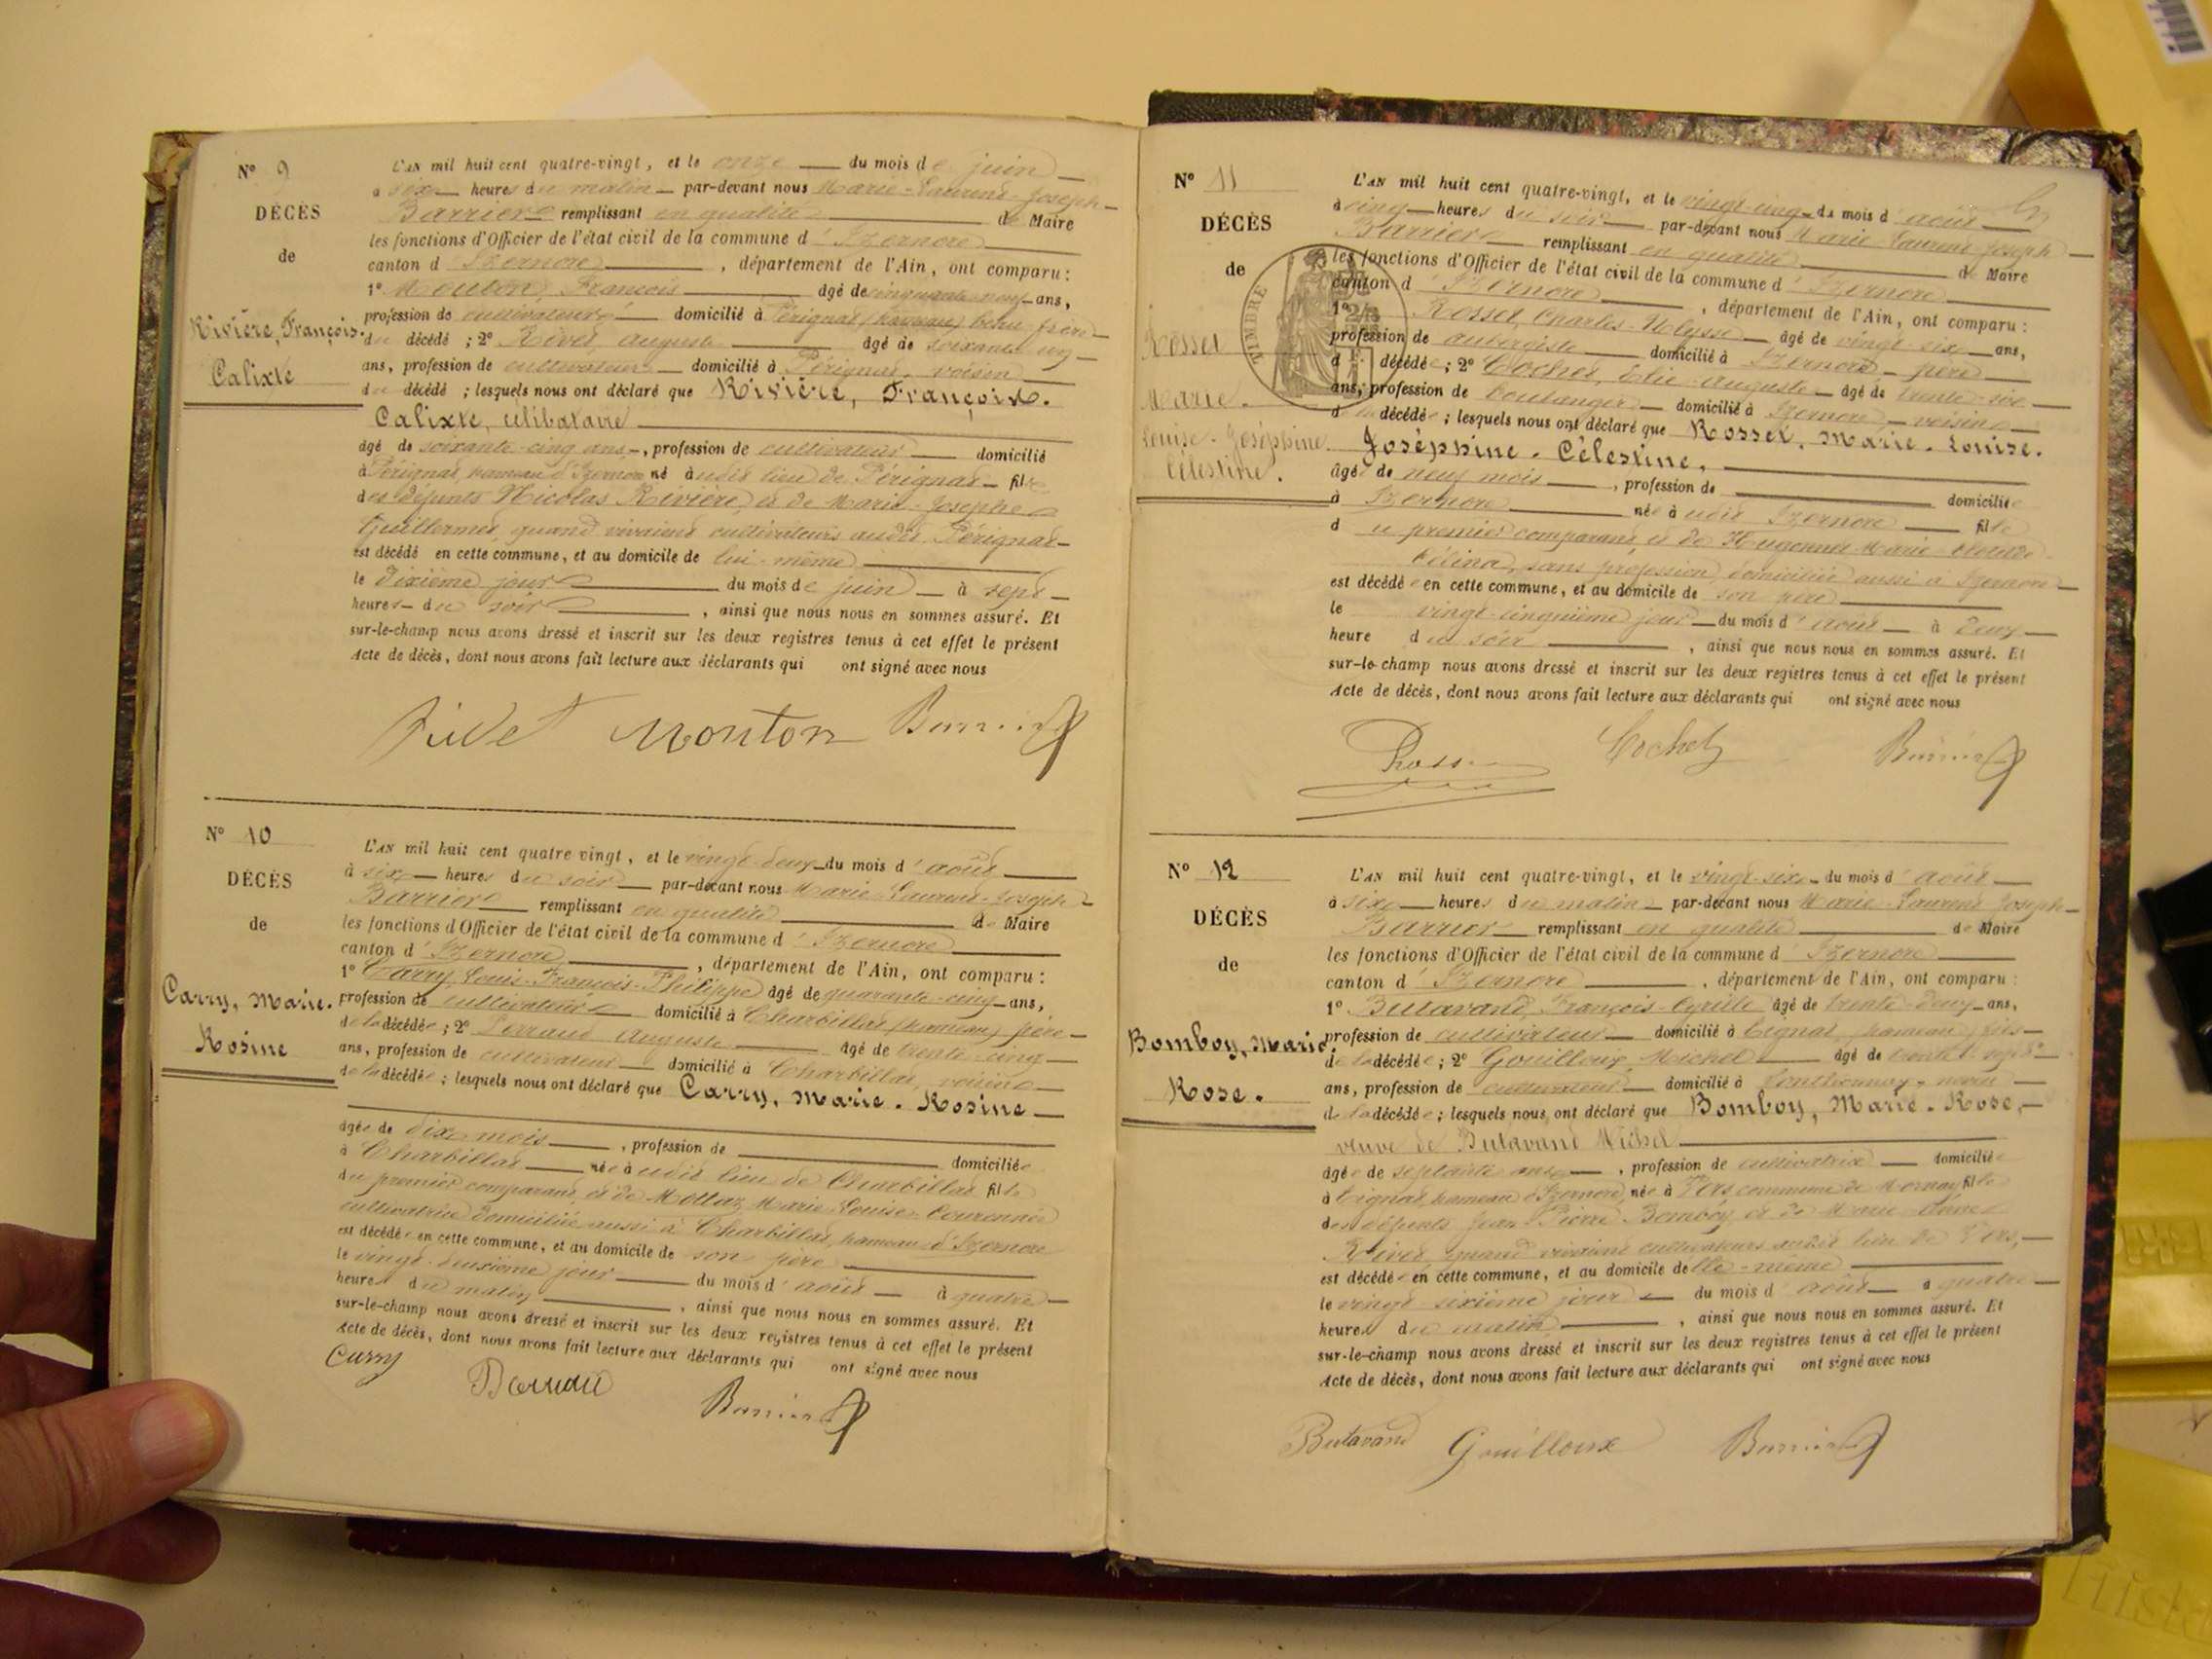 N° 9
DÉCÈS
de
Rivière, François.
Calixte
L'AN mil huit cent quatre-vingt, et le onze du mois de juin
à six heures du matin par-devant nous Marie-Laurent-Joseph
Barrier remplissant en qualité de Maire
les fonctions d'Officier de l'état civil de la commune d'Izernore
canton d'Izernore, département de l'Ain, ont comparu :
1° Mouton, François âgé de cinquante-neuf ans,
profession de cultivateur domicilié à Pérignat (hameau) beau-frère
du décédé ; 2° Rivet, Auguste âgé de soixante un
ans, profession de cultivateur domicilié à Pérignat, voisin
du décédé ; lesquels nous ont déclaré que Rivière, François.
Calixte, célibataire
âgé de soixante-cinq ans, profession de cultivateur domicilié
à Pérignat, hameau d'Izernore né audit lieu de Pérignat fils
des défunts Nicolas Rivière, et de Marie-Josephe
Guillermet, quand vivaient cultivateurs audit Pérignat
est décédé en cette commune, et au domicile de lui-même
le dixième jour du mois de juin à sept
heures du soir, ainsi que nous nous en sommes assuré. Et
sur-le-champ nous avons dressé et inscrit sur les deux registres tenus à cet effet le présent
Acte de décès, dont nous avons fait lecture aux déclarants qui ont signé avec nous
Rivet Mouton Barrier
N° 10
DÉCÈS
de
Carry, Marie.
Rosine
L'AN mil huit cent quatre vingt, et le vingt-deux du mois d'août
à six heures du soir par-devant nous Marie-Laurent-Joseph
Barrier remplissant en qualité de Maire
les fonctions d'Officier de l'état civil de la commune d'Izernore
canton d'Izernore, département de l'Ain, ont comparu :
1° Carry, Louis-François-Philippe âgé de quarante-cinq ans,
profession de cultivateur domicilié à Charbillat (hameau) père
de la décédée ; 2° Auguste âgé de trente-cinq
ans, profession de cultivateur domicilié à Charbillat, voisin
de la décédée ; lesquels nous ont déclaré que Carry, Marie. Rosine
âgée de dix mois, profession de domiciliée
à Charbillat née audit lieu de Charbillat fille
du premier comparant, et de Mollaz Marie-Louise
cultivatrice domiciliée aussi à Charbillat, hameau d'Izernore
est décédée en cette commune, et au domicile de son père
le vingt-deuxième jour du mois d'août à quatre
heures du matin, ainsi que nous nous en sommes assuré. Et
sur-le-champ nous avons dressé et inscrit sur les deux registres tenus à cet effet le présent
Acte de décès, dont nous avons fait lecture aux déclarants qui ont signé avec nous
Carry
Barrier
N° 11
DÉCÈS
de
Rosset
Marie.
Louise-Joséphine
Célestine.
TIMBRE
L'AN mil huit cent quatre-vingt, et le vingt-cinq du mois d'août
à cinq heures du soir par-devant nous Marie-Laurent-Joseph
Barrier remplissant en qualité de Maire
les fonctions d'Officier de l'état civil de la commune d'Izernore
canton d'Izernore, département de l'Ain, ont comparu :
1° Rosset, Charles-Ulysse âgé de vingt-six ans,
profession de aubergiste domicilié à Izernore père
d décédée ; 2° Cochet, Elie-Auguste âgé de trente-six
ans, profession de boulanger domicilié à Izernore, voisin
d la décédée ; lesquels nous ont déclaré que Rosset, Marie. Louise.
Joséphine. Célestine,
âgée de neuf mois, profession de domiciliée
à Izernore née audit Izernore fille
du premier comparant, et de Hugonnet Marie
Célina, sans profession, domiciliée aussi à Izernore
est décédée en cette commune, et au domicile de son père
le vingt-cinquième jour du mois d'août à deux
heure du soir, ainsi que nous nous en sommes assuré. Et
sur-le-champ nous avons dressé et inscrit sur les deux registres tenus à cet effet le présent
Acte de décès, dont nous avons fait lecture aux déclarants qui ont signé avec nous
Rosset Cochet Barrier
N° 12
DÉCÈS
de
Bomboy, Marie
Rose.
L'AN mil huit cent quatre-vingt, et le vingt-six du mois d'août
à six heures du matin par-devant nous Marie-Laurent-Joseph
Barrier remplissant en qualité de Maire
les fonctions d'Officier de l'état civil de la commune d'Izernore
canton d'Izernore, département de l'Ain, ont comparu :
1° Butavand, François-Cyrille âgé de trente-deux ans,
profession de cultivateur domicilié à Tignat, hameau, fils
de la décédée ; 2° Gouilloux, Michel âgé de trente sept
ans, profession de cultivateur domicilié à
de la décédée ; lesquels nous ont déclaré que Bomboy, Marie. Rose,
veuve de Butavand Michel
âgée de septante ans, profession de cultivatrice domiciliée
à Tignat, hameau d'Izernore, née à Vers commune de Mornay fille
des défunts Jean-Pierre Bomboy et de Marie
Rivet, quand vivaient cultivateurs audit lieu de Vers,
est décédée en cette commune, et au domicile d'elle-même
le vingt-sixième jour du mois d'août à quatre
heures du matin, ainsi que nous nous en sommes assuré. Et
sur-le-champ nous avons dressé et inscrit sur les deux registres tenus à cet effet le présent
Acte de décès, dont nous avons fait lecture aux déclarants qui ont signé avec nous
Butavand Gouilloux Barrier